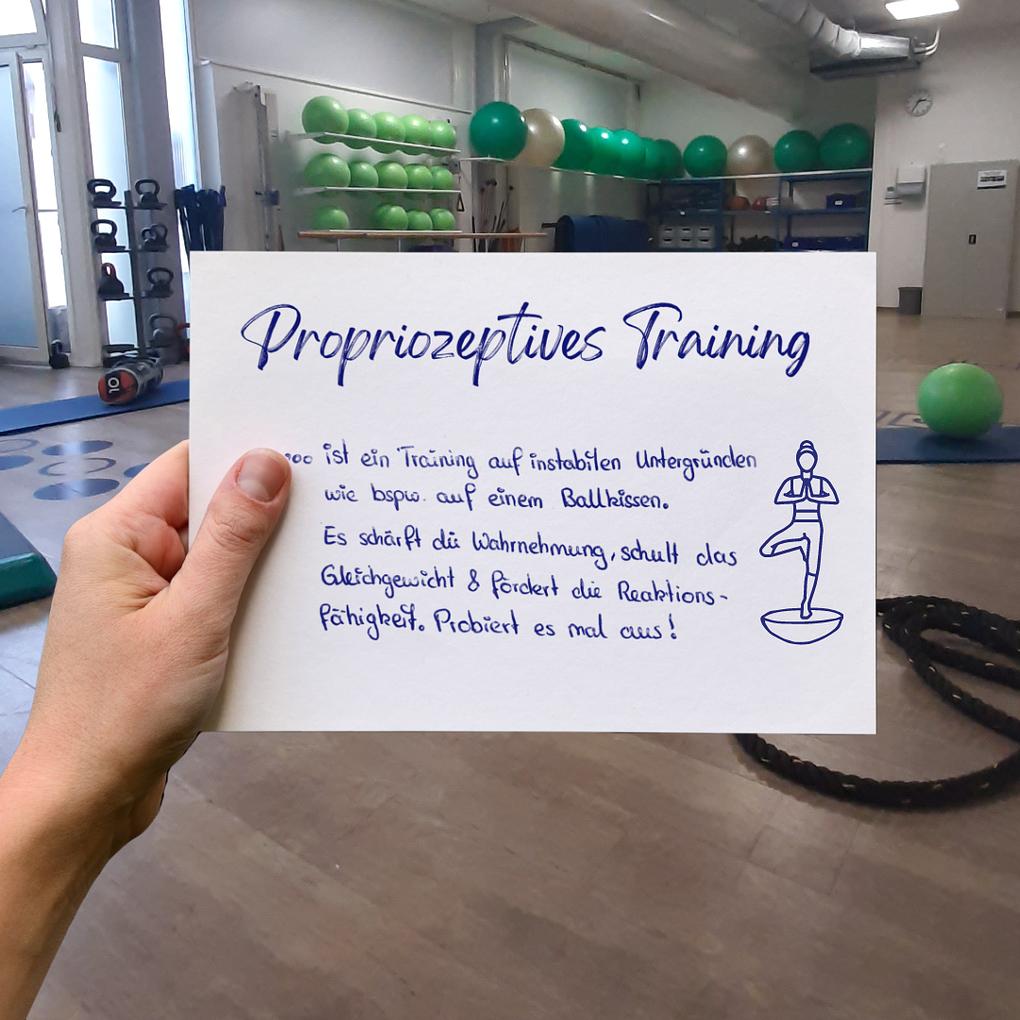 Propriozeptives Training
... ist ein Training auf instabilen Untergründen
wie bspw. auf einem Ballkissen.
Es schärft die Wahrnehmung, schult das
Gleichgewicht & fördert die Reaktions-
fähigkeit. Probiert es mal aus!
10